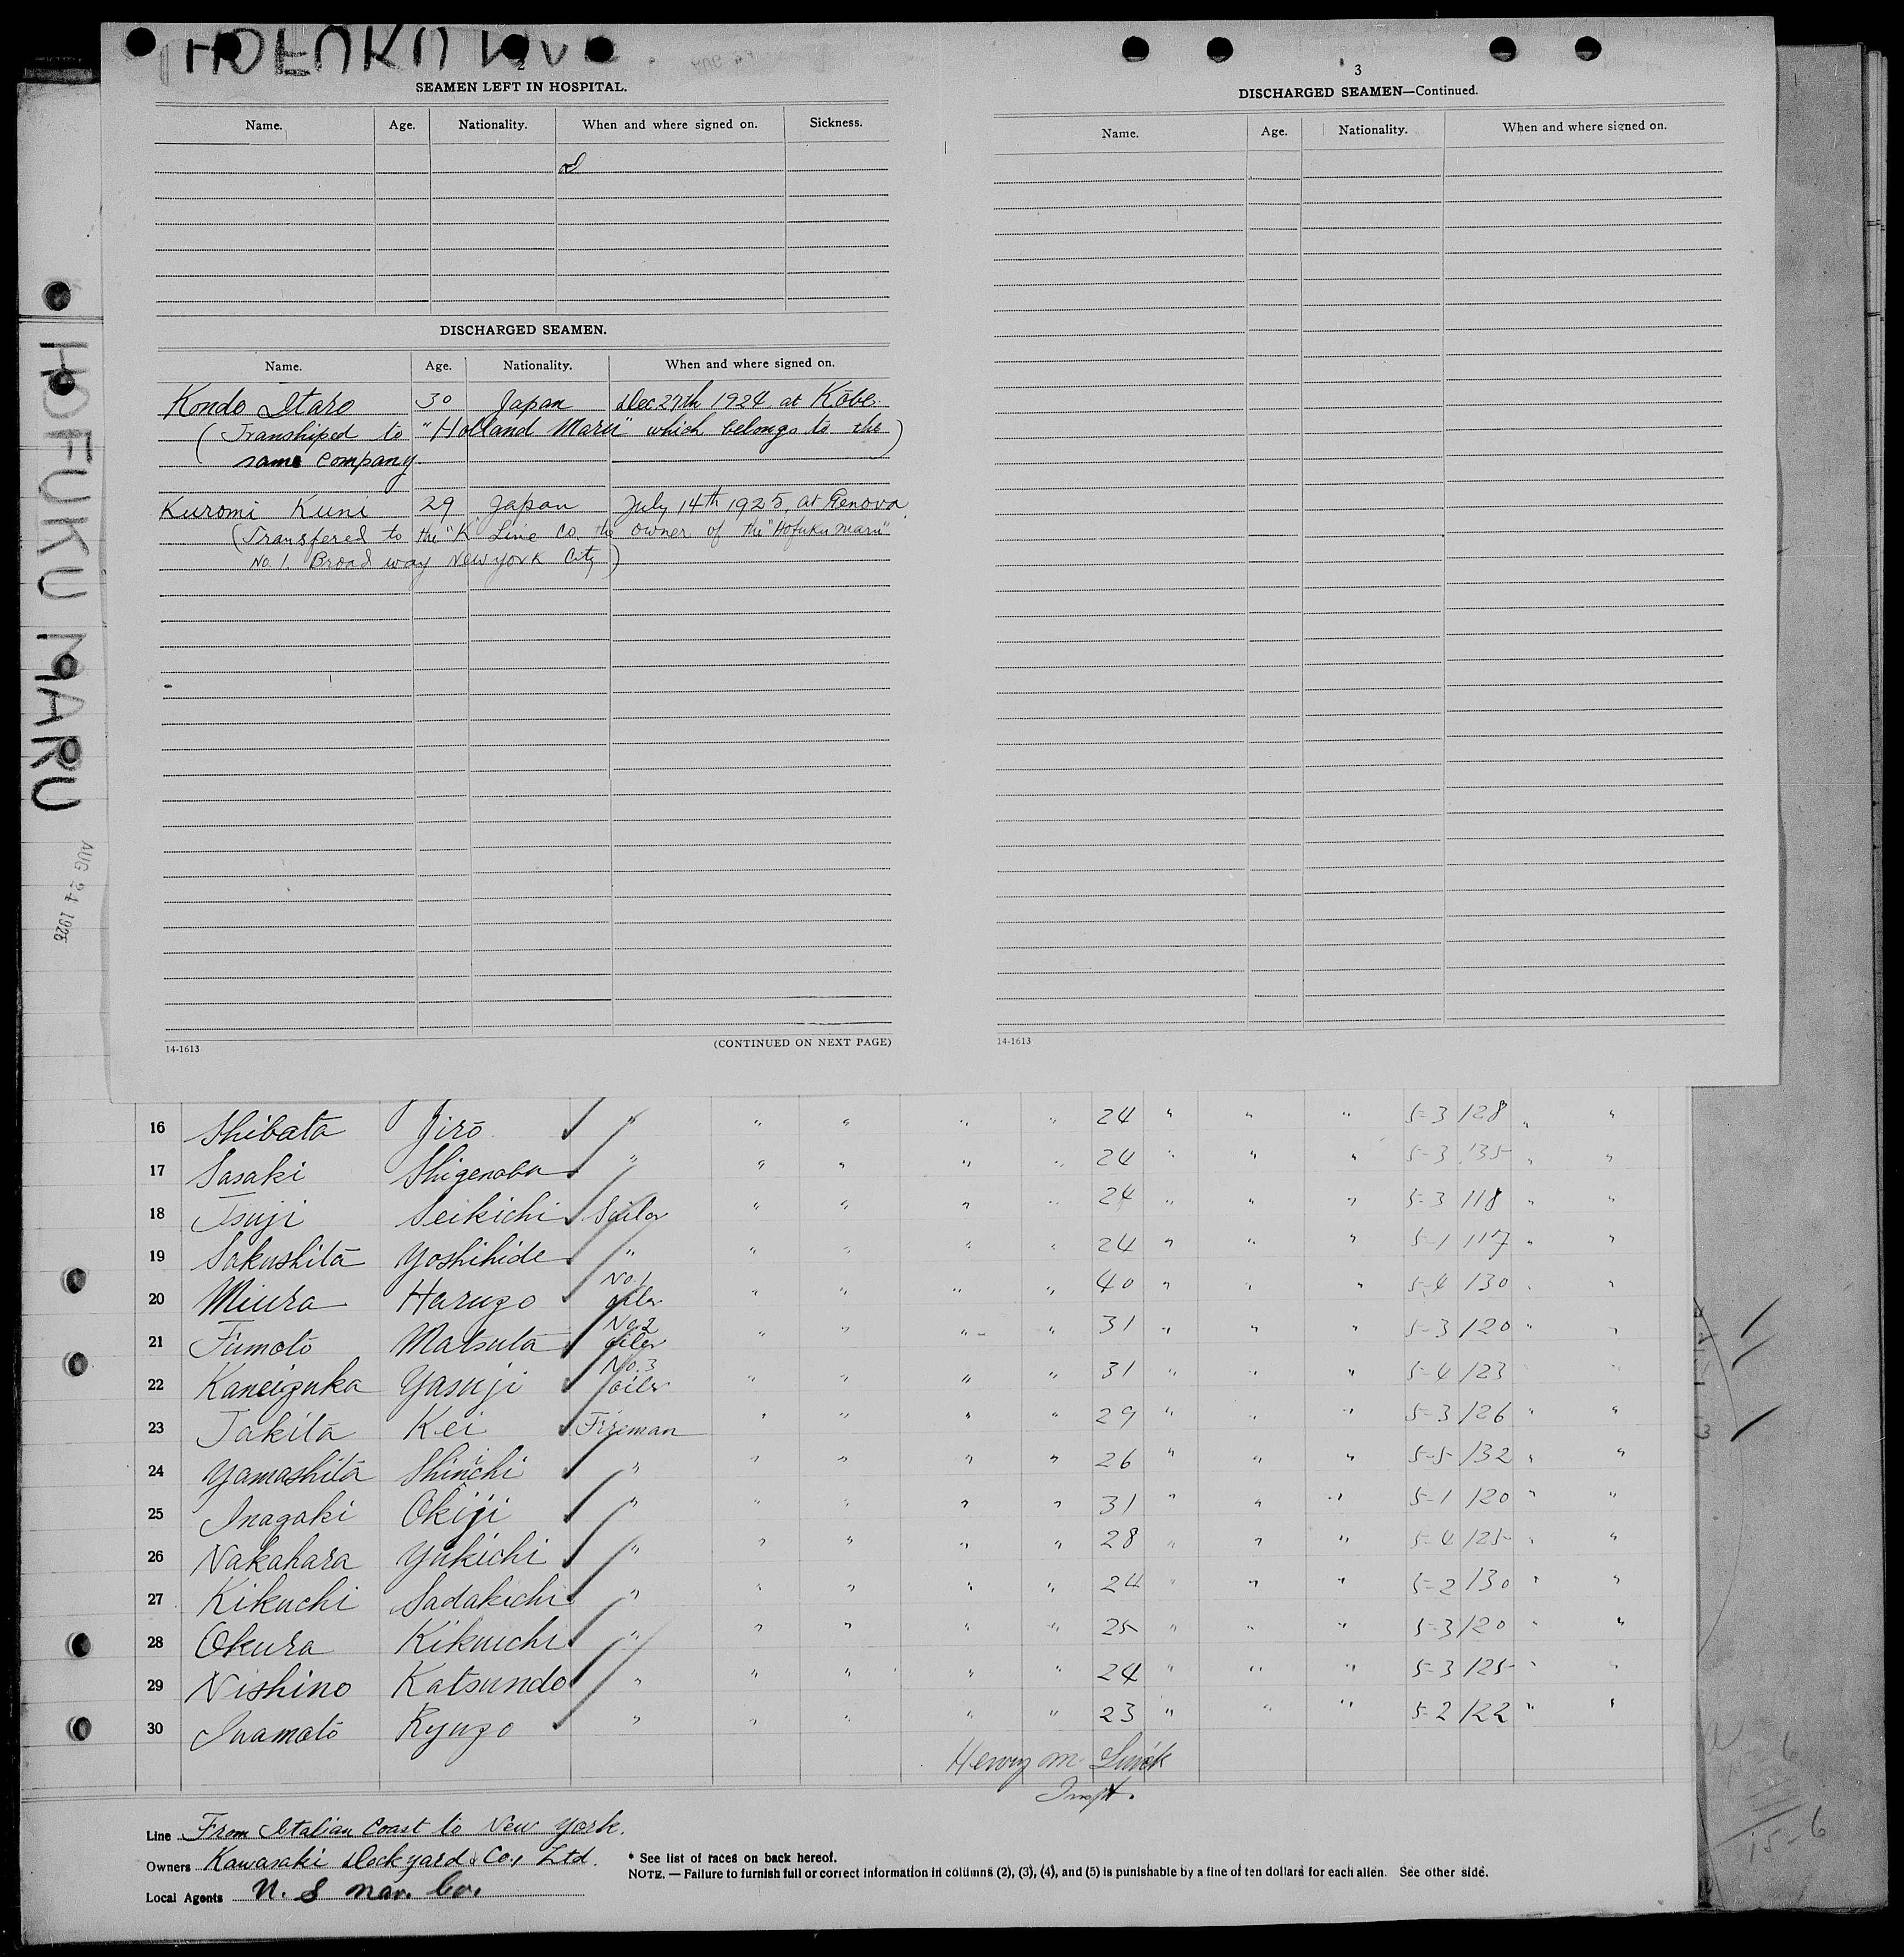 HOFUKU MARU
AUG 24 1925
2
SEAMEN LEFT IN HOSPITAL.
Name. Age. Nationality. When and where signed on. Sickness.
DISCHARGED SEAMEN.
Name. Age. Nationality. When and where signed on.
Kondo Itaro 30 Japan Dec 27th 1924 at Kōbe.
(Transhiped to "Holland Maru" which belongs to the)
same company.
Kuromi Kuni 29 Japan July 14th 1925, at Genova
(Transfered to the "K" Line Co. the owner of the "Hofuku maru"
No. 1. Broad way New york City)
14-1613 (CONTINUED ON NEXT PAGE)
3
DISCHARGED SEAMEN—Continued.
Name. Age. Nationality. When and where signed on.
14-1613
16 Shibata Jirō " " " " " 24 " " " 5-3 128 " "
17 Sasaki Shigenobu " " " " " 24 " " " 5-3 135 " "
18 Tsuji Seikichi Sailor " " " " 24 " " " 5-3 118 " "
19 Sakushita Yoshihide " " " " " 24 " " " 5-1 117 " "
20 Miura Haruzo No. 1 oiler " " " " 40 " " " 5-4 130 " "
21 Fumoto Matsuta No. 2 oiler " " " " 31 " " " 5-3 120 " "
22 Kaneizuka Yasuji No. 3 oiler " " " " 31 " " " 5-4 123
23 Takita Kei Fireman " " " " 29 " " " 5-3 126 " "
24 Yamashita Shinichi " " " " " 26 " " " 5-5 132 " "
25 Inagaki Okiji " " " " " 31 " " " 5-1 120 " "
26 Nakahara Yukichi " " " " " 28 " " " 5-4 125 " "
27 Kikuchi Sadakichi " " " " " 24 " " " 5-2 130 " "
28 Okura Kikuichi " " " " " 25 " " " 5-3 120 " "
29 Nishino Katsundo " " " " " 24 " " " 5-3 125 " "
30 Iwamoto Ryuzo " " " " " 23 " " " 5-2 122 " "
Henry M.
Inspt.
Line From Italian Coast to New York.
Owners Kawasaki Dockyard Co., Ltd.
Local Agents N. S Nav. Co.
* See list of races on back hereof.
NOTE. — Failure to furnish full or correct information in columns (2), (3), (4), and (5) is punishable by a fine of ten dollars for each alien. See other side.
15-6